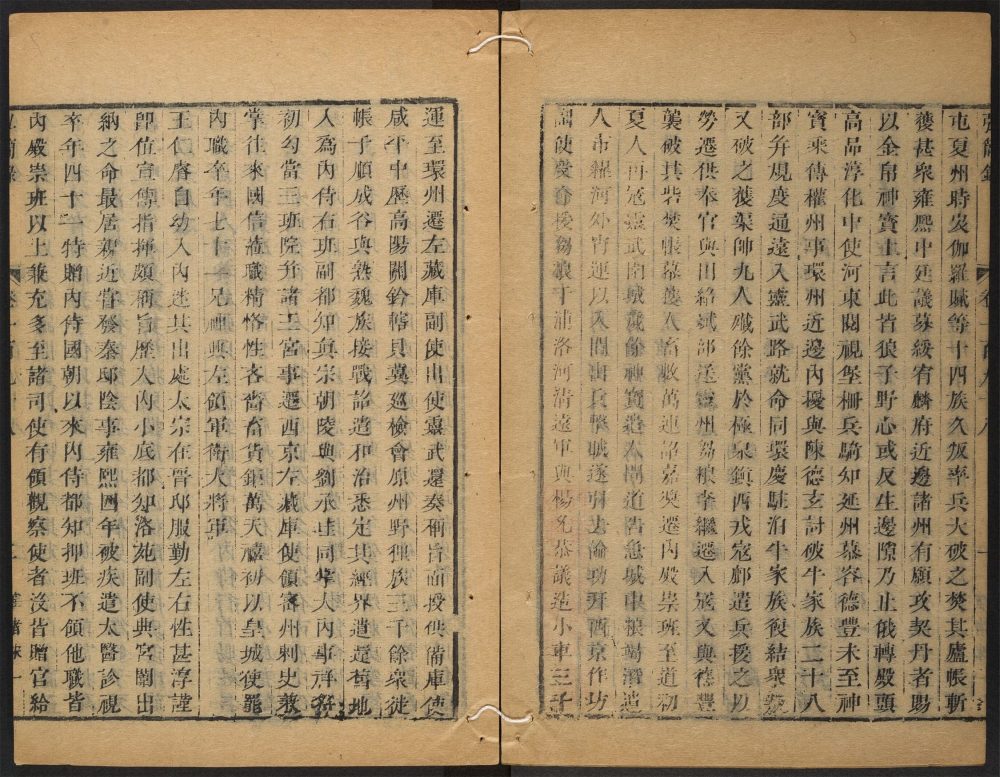 屯夏州時岌伽羅膩等十四族久叛率兵大破之焚其廬帳斬
獲甚衆雍熙中廷議募綏宥麟府近邊諸州有願攻契丹者賜
以金帛神寶上言此皆狼子野心或反生邊隙乃止俄轉殿頭
高品淳化中使河東閱視堡柵兵騎知延州慕容德豐未至神
寶乘傳權州事環州近邊內擾與陳德玄討破牛家族二十八
部并規度通遠入靈武路就命同環慶駐泊牛家族復結衆
又破之獲渠帥九人殲餘黨於極泉鎮西戎寇鄜遣兵援之以
勞遷供奉官與田紹斌部送靈州芻糧李繼遷入寇又與德豐
襲破其砦焚帳幕獲人畜數萬連詔嘉奬遷內殿崇班至道初
夏人再寇靈武圍城歲餘神寶遣人間道告急城中糧竭潛遣
人市糴河外宵運以入間出兵擊賊遂引去論功拜西京作坊
副使發命授芻糧于浦洛河清遠軍與楊允恭議造小車三千
運至環州遷左藏庫副使出使靈武還奏稱旨面授供備庫使
咸平中歷高陽關鈐轄貝冀巡檢會原州野狸族三千餘衆徙
帳于順成谷與蕃魏族接戰詔遣和治悉定其經界遣還舊地
入爲內侍右班副都知眞宗朝陵與劉承珪同掌大內事祥符
初勾當三班院并諸王宮事遷西京左藏庫使領密州刺史兼
掌往來國信蒞職精恪性吝嗇畜貨鉅萬天禧初以皇城使罷
內職卒年七十一兄神興左領軍衛大將軍
王仁睿自幼入內迷其出處太宗在晉邸服勤左右性甚淳謹
卽位宣傳指揮頗稱旨歷入內小底都知洛苑副使典宮闈出
納之命最居親近嘗發秦邸陰事雍熙四年被疾遣太醫診視
卒年四十一特贈內侍國朝以來內侍都知押班不領他職皆
內殿崇班以上兼充多至諸司使有領觀察使者沒皆贈官給